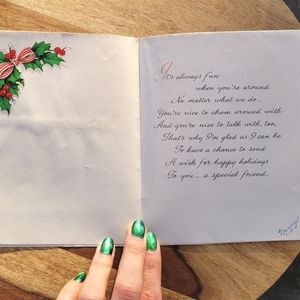 It's always fun
when you're around
No matter what we do...
You're nice to chum around with
And you're nice to talk with, too,
That's why I'm glad as I can be
To have a chance to send
A wish for happy holidays
To you... a special friend.